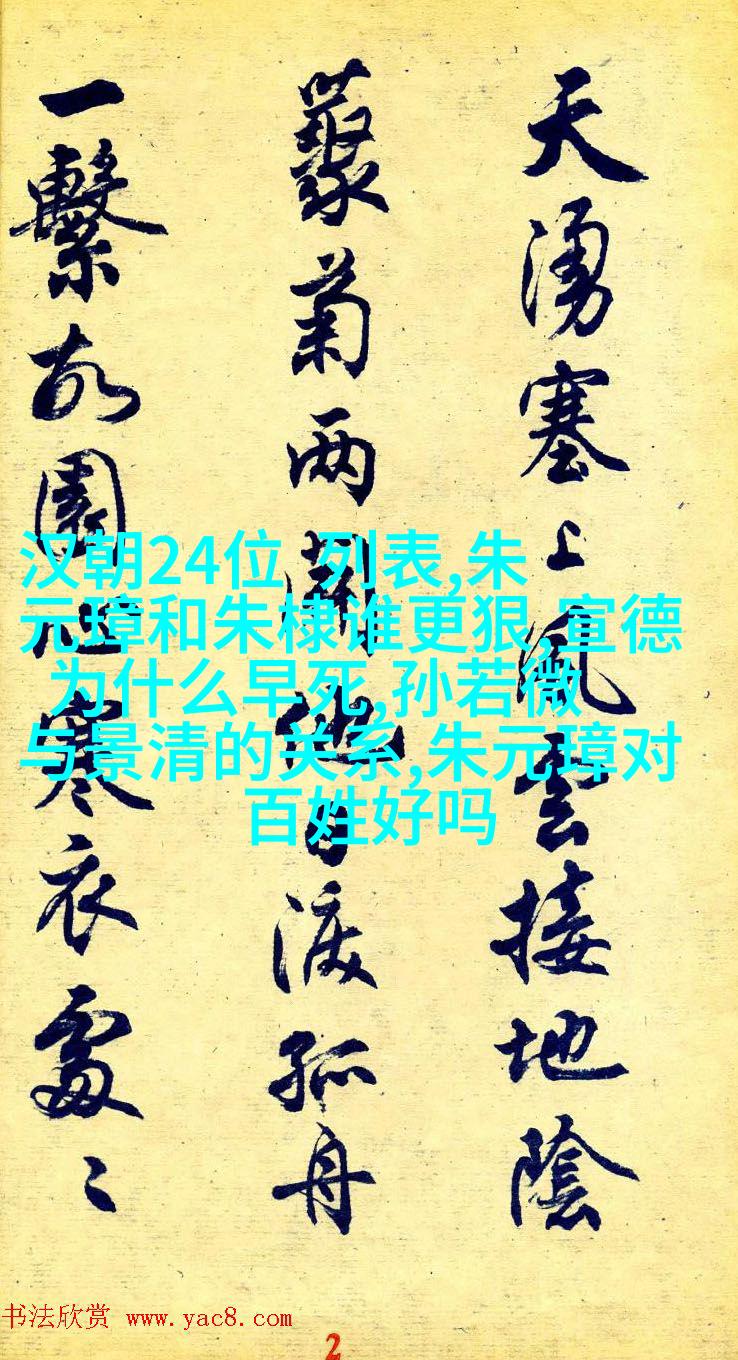 天湧塞上風雲接地陰
叢菊两開他日淚孤舟
一繫故園心寒衣處〻
汉朝24位 列表,朱
元璋和朱棣谁更狠,宣德
为什么早死,孙若微
与景清的关系,朱元璋对
百姓好吗
书法欣赏 www.yac8.com
2